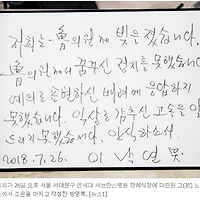 저희는 魯의원께 빚을 졌습니다.
魯의원께서 꿈꾸신 정치를 못했습니다.
예의로 표현하신 배려에 응답하지 못했습니다.
익살로 감추신 고독을 알아
드리지 못했습니다. 안식하소서.
2018. 7. 26. 이낙연 哭
리가 26일 오후 서울 서대문구 연세대 세브란스병원 장례식장에 마련된 고(故) 노
소에서 조문을 마치고 작성한 방명록. [뉴스1]